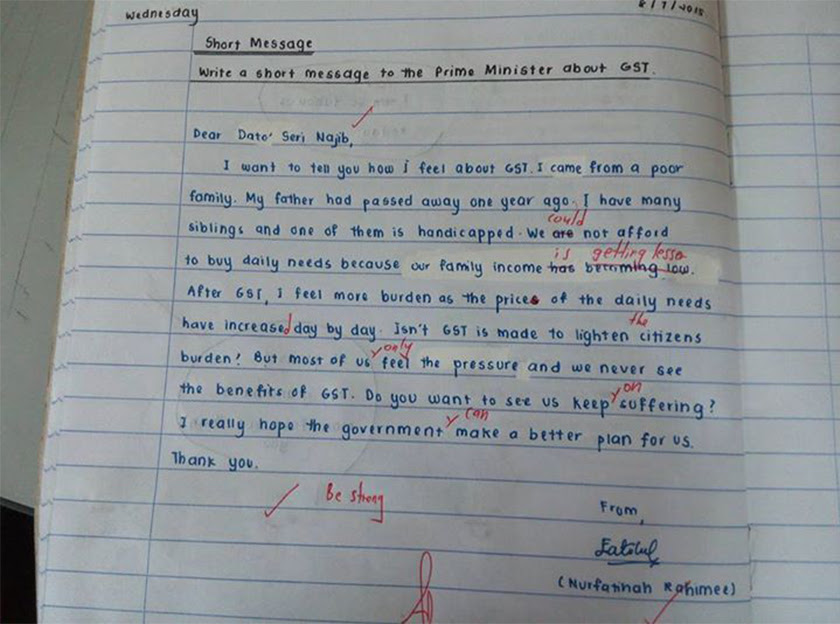 Wednesday
8/7/2015
Short Message
Write a short message to the Prime Minister about GST.
Dear Dato' Seri Najib,
I want to tell you how i feel about GST. I came from a poor
family. My father had passed away one year ago. I have many
could
siblings and one of them is handicapped. We are not afford
is getting lesser
to buy daily needs because our family income has becoming low.
After GST, I feel more burden as the prices of the daily needs
the
have increased day by day. Isn't GST is made to lighten citizens
only
burden? But most of us feel the pressure and we never see
on
the benefits of GST. Do you want to see us keep suffering?
can
I really hope the government make a better plan for us.
Thank you.
Be strong
From,
(Nurfatihah Rahimee)